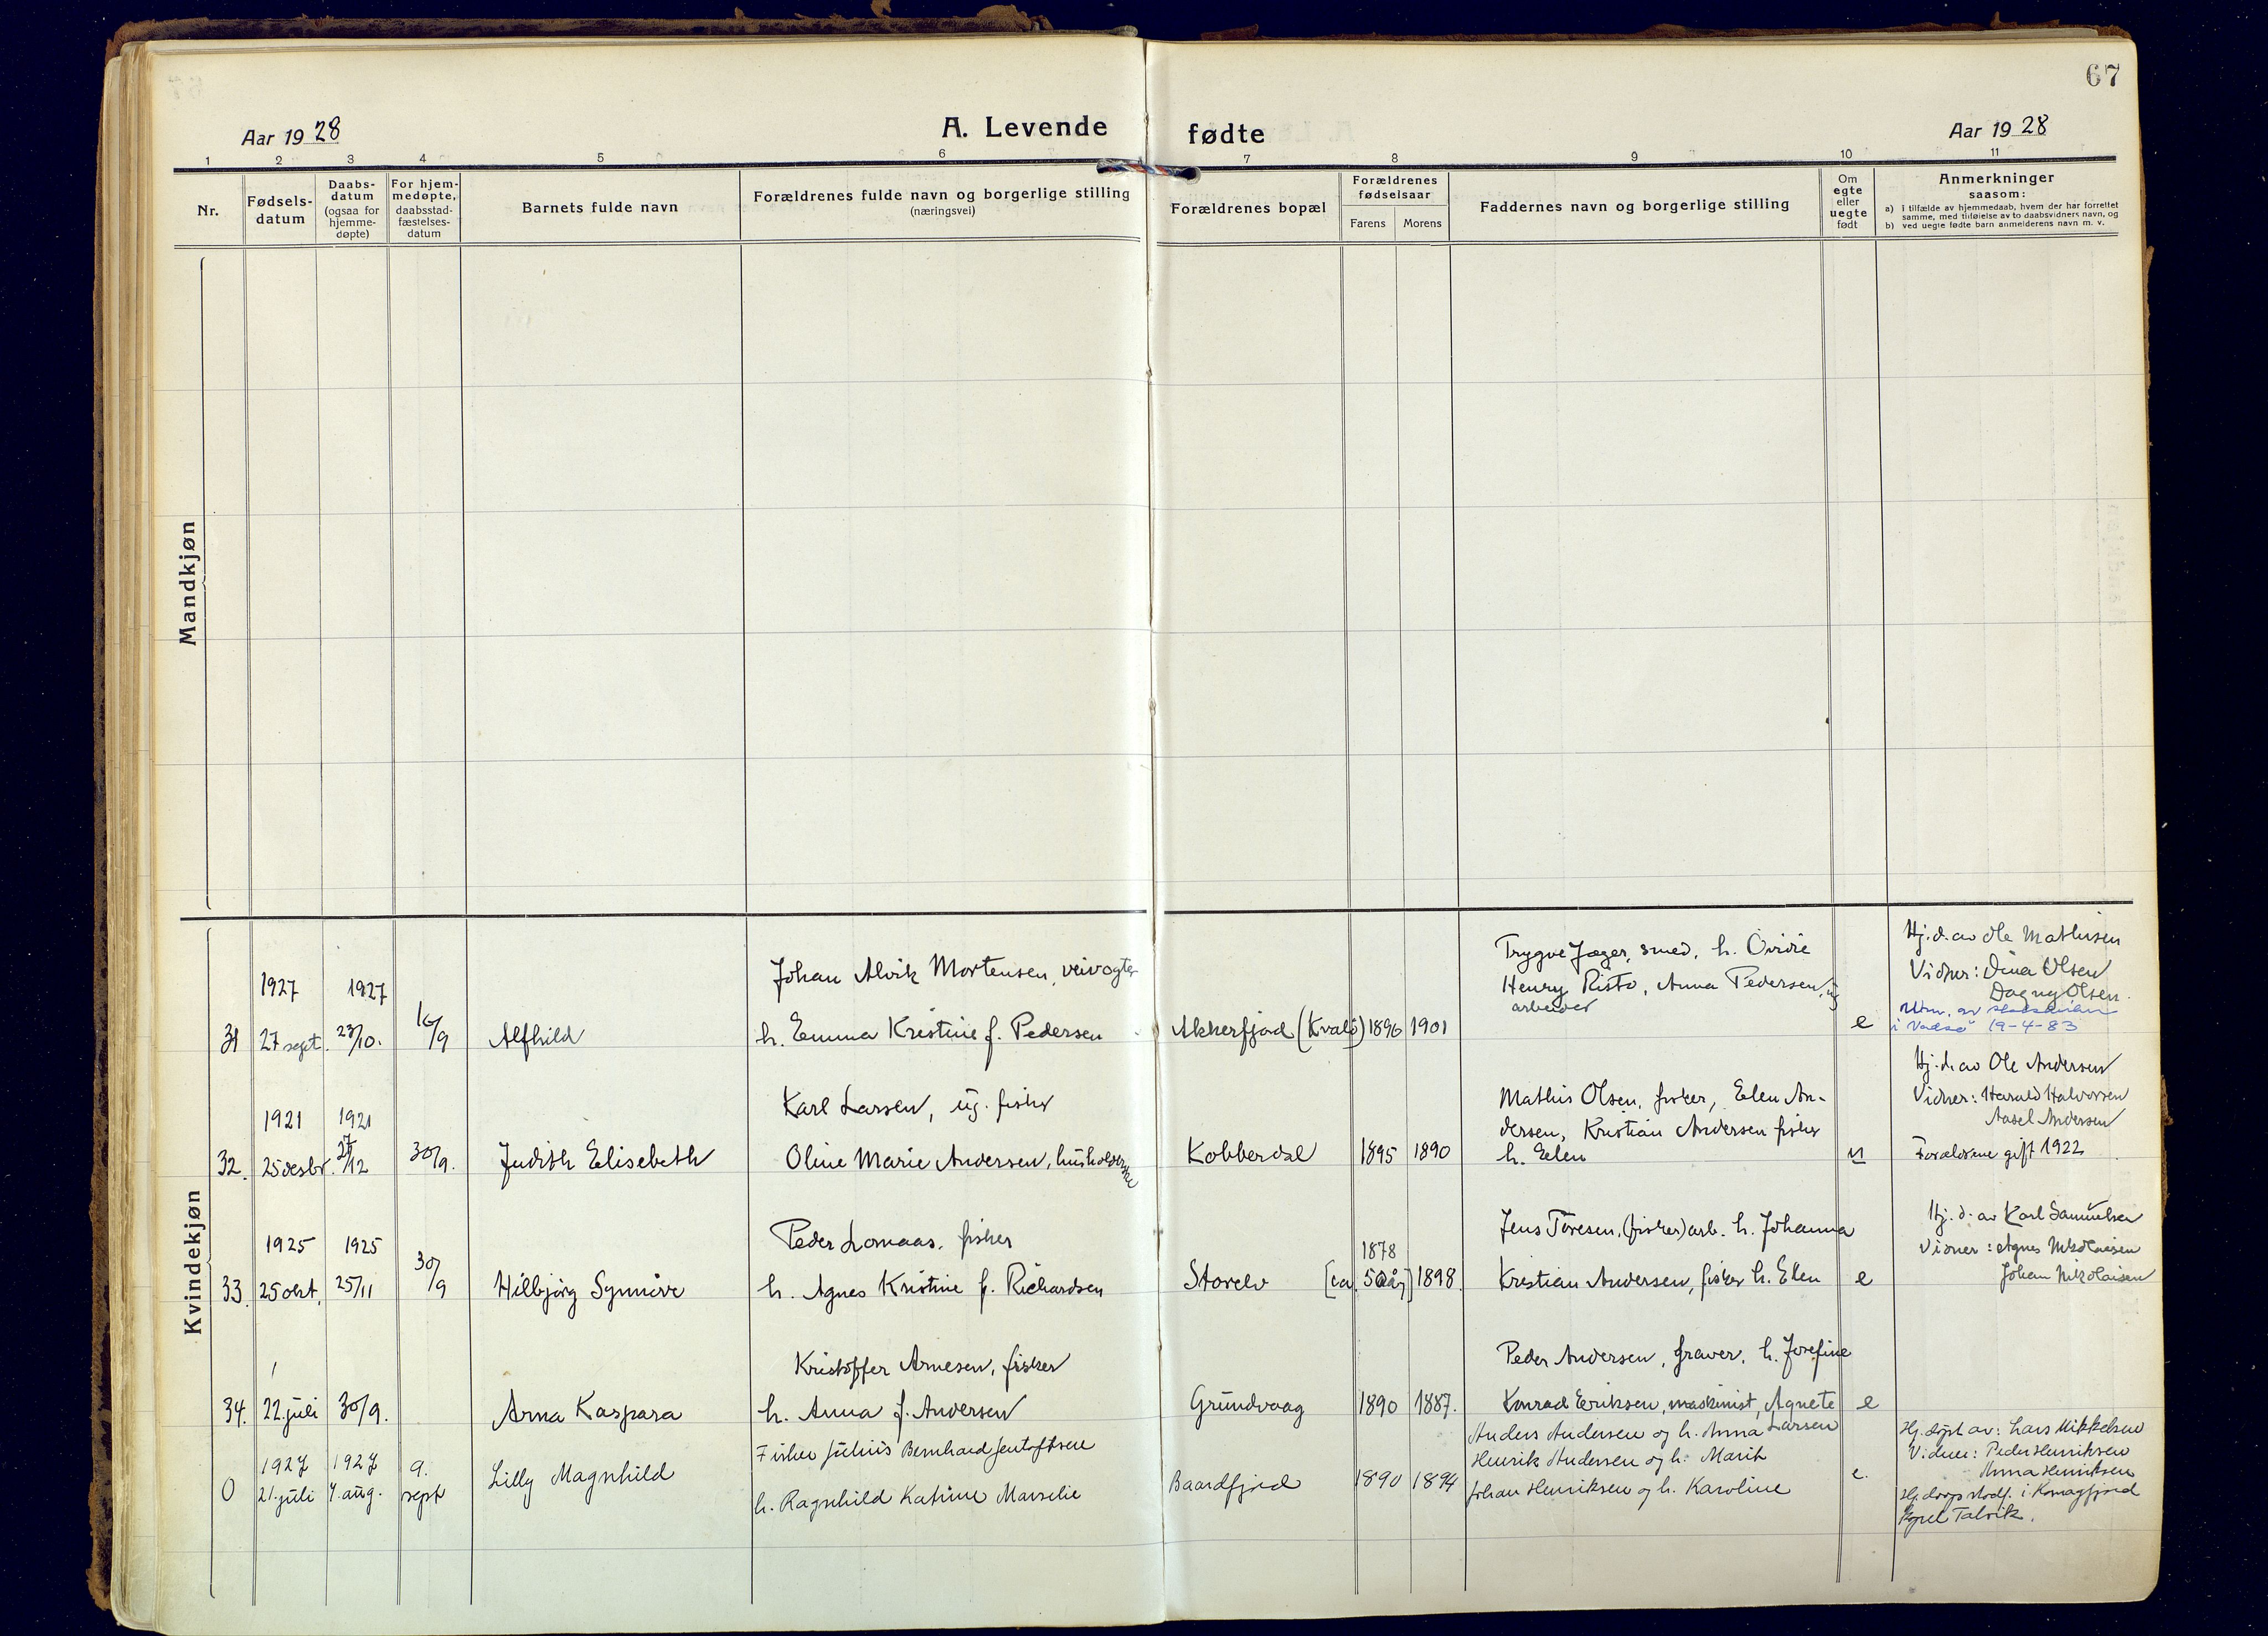 67
Aar 1928
A. Levende fødte
Aar 1928
1 2 3 4 5 6 7 8 9 10 11
Nr.
Fødsels-
datum
Daabs-
datum
(ogsaa for
hjemme-
døpte)
For hjem-
medøpte,
daabsstad-
fæstelses-
datum
Barnets fulde navn
Forældrenes fulde navn og borgerlige stilling
(næringsvei)
Forældrenes bopæl
Forældrenes
fødselsaar
Farens Morens
Faddernes navn og borgerlige stilling
Om
egte
eller
uegte
født
Anmerkninger
saasom:
a) i tilfælde av hjemmedaab, hvem der har forrettet
samme, med tilføielse av to daabsvidners navn, og
b) ved uegte fødte barn anmelderens navn m. v.
Mandkjøn
Kvindekjøn
31
1927
27 sept.
1927
23/10.
16/9
Alfhild
Johan Alvik Mortensen, veivogter
h. Emma Kristine f. Pedersen
Akkerfjord (Kvalö)
1896
1901
Trygve Jæger, smed, h. Ovidie
Henry Risto, Anna Pedersen, ug
arbeider
e
Hj.d. av Ole Mathisen
Vidner: Dina Olsen
Dagny Olsen.
i Vadsø 19-4-83
32.
1921
25 desbr.
1921
27/12
30/9.
Judith Elisebeth
Karl Larsen, ug. fisker
Oline Marie Andersen, husholderske
Kobberdal
1895
1890
Mathis Olsen, fisker, Elen An-
dersen, Kristian Andersen fisker
h. Elen
u
Hj.d. av Ole Andersen
Vidner: Harald Halvorsen
Aasel Andersen
Forældrene gift 1922
33.
1925
25 okt.
1925
25/11
30/9
Hilbjörg Synnöve
Peder Lomaas, fisker
h. Agnes Kristine f. Richardsen
Storelv
1878
[ca. 50 år]
1898.
Jens Toresen, (fisker) arb. h. Johanna
Kristian Andersen, fisker h. Elen
e
Hj.d. av Karl Samuelsen
Vidner: Agnes Nikolaisen
Johan Nikolaisen
34.
22. juli
30/9.
Arna Kaspara
Kristoffer Arnesen, fisker
h. Anna f. Andersen
Grundvaag
1890
1887.
Peder Andersen, graver, h. Josefine
Konrad Eriksen, maskinist, Agnete
Larsen
e
0
1927
21. juli
1927
7. aug.
9.
sept
Lilly Magnhild
Fisker Julius Bernhard Jentoftsen
h. Ragnhild Katrine Marselie
Baardfjord
1890
1894
Anders Andersen og h. Anna
Henrik Andersen og h. Marit
Johan Henriksen og h. Karoline
e.
Hj. døpt av: Lars Mikkelsen
Vidner: Peder Henriksen
Anna Henriksen
Hj.daap stadf. i Komagfjord
Kapel Talvik.